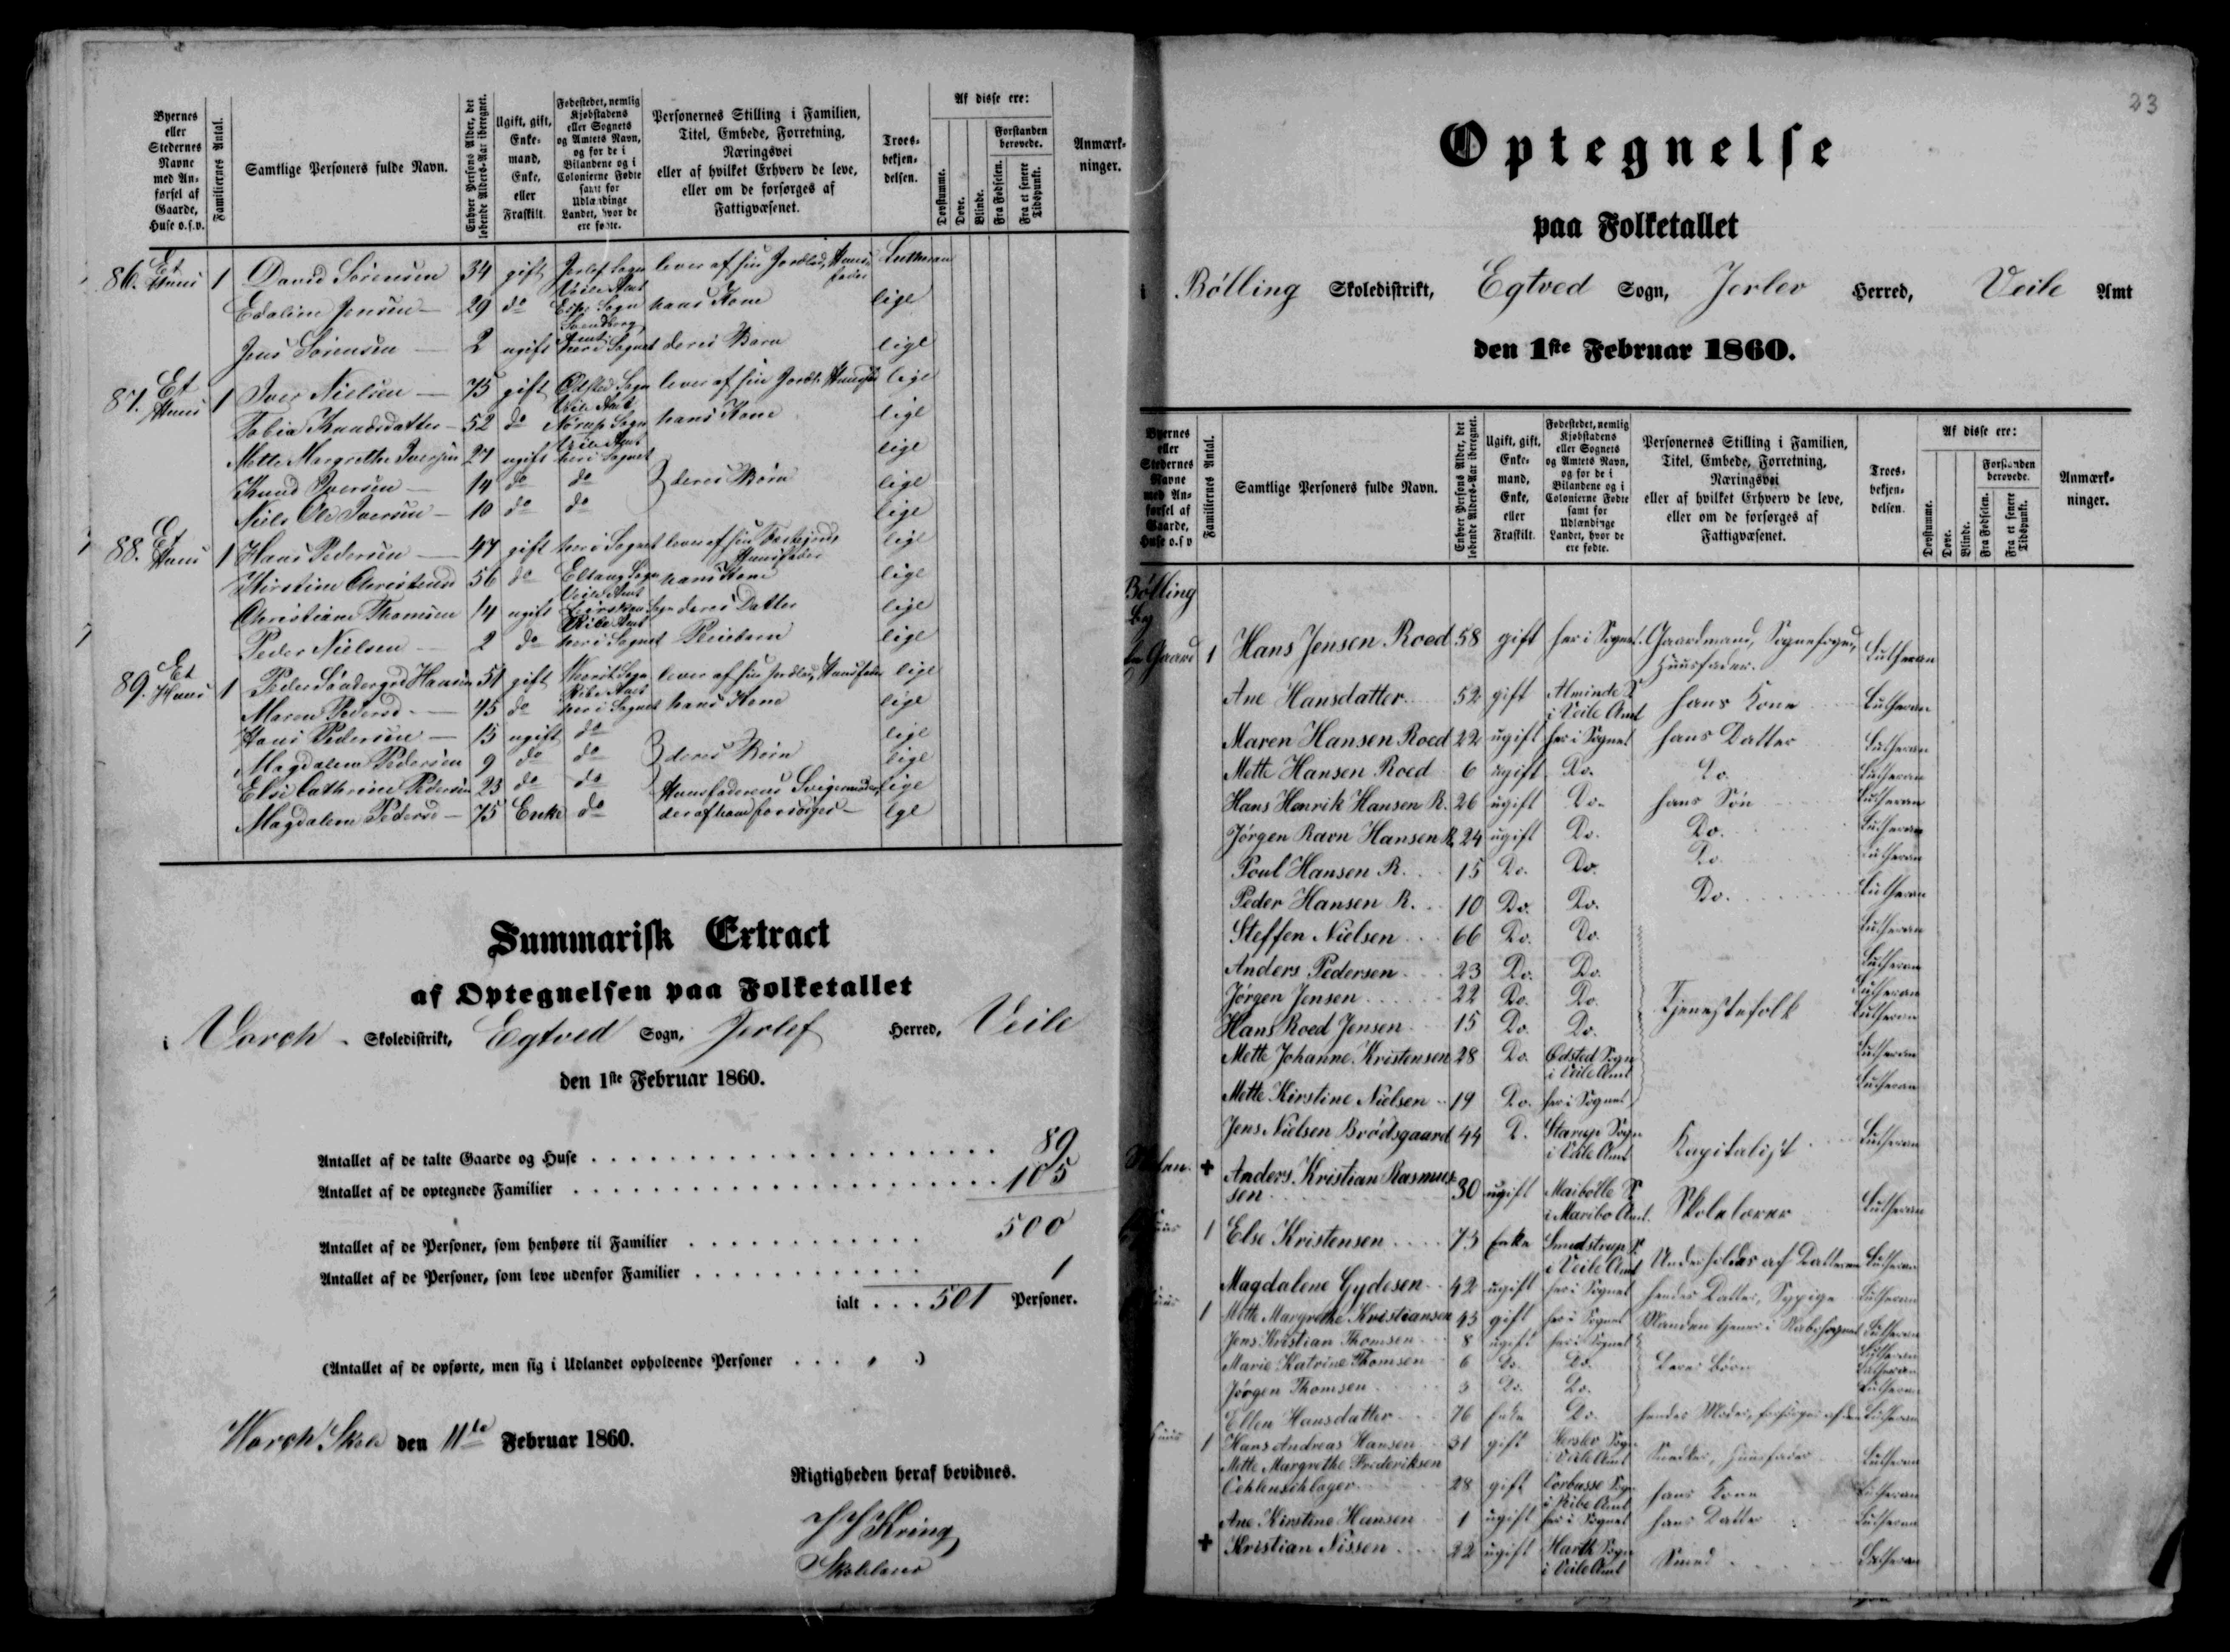 Byernes eller Stedernes Navne med Anførsel af Gaarde, Huse o.s.v.
Familiernes Antal.
Samtlige Personers fulde Navn.
Enhver Persons Alder, det løbende Alders-Aar iberegnet.
Ugift, gift, Enkemand, Enke, eller Fraskilt.
Fødestedet, nemlig Kjøbstadens eller Sognets og Amtets Navn, og for de i Bilandene og i Colonierne Fødte samt for Udlændinge Landet, hvor de ere fødte.
Personernes Stilling i Familien, Titel, Embede, Forretning, Næringsvei eller af hvilket Erhverv de leve, eller om de forsørges af Fattigvæsenet.
Troesbekjendelsen.
Af disse ere:
Døvstumme.
Døve.
Blinde.
Forstanden berøvede.
Fra Fødselen.
Fra et senere Tidspunkt.
Anmærkninger.
86. Et Huus 1 David Sørensen 34 gift Jerlef Sogn Veile Amt lever af sin Jordlod, Huusfader Lutheran
Edaline Jensen 29 do Sogn Svendborg Amt hans Kone lige
Jens Sørensen 2 ugift her i Sognet deres Barn lige
87. Et Huus 1 Iver Nielsen 75 gift Ødsted Sogn Veile Amt lever af sin Jordl. Huusfader lige
Tobia Knudsdatter 52 do Nørup Sogn Veile Amt hans Kone lige
Mette Margrethe Iversen 27 ugift her i Sognet lige
Knud Iversen 14 do do deres Børn lige
Niels Ole Iversen 10 do do lige
88. Et Huus 1 Hans Pedersen 47 gift her i Sognet lever af sin Huusfader lige
Kirstine Christensd 56 do Eltang Sogn Veile Amt hans Kone lige
Christiane Thomsen 14 ugift Sogn Ribe Amt deres Datter lige
Peder Nielsen 2 do her i Sognet Pleiebarn lige
89. Et Huus 1 Peder Søndergrd Hansen 51 gift Sogn Ribe Amt lever af sin Jordlod, Huusfader lige
Maren Pedersd. 45 do her i Sognet hans Kone lige
Hans Pedersen 15 ugift do lige
Magdalene Pedersen 9 do do deres Børn lige
Else Cathrine Pedersen 23 do do lige
Magdalene Pedersd 75 Enke do Huusfaderens Svigermoder, der af ham forsørges lige
Summarisk Extract
af Optegnelsen paa Folketallet
i Vorch Skoledistrikt, Egtved Sogn, Jerlef Herred, Veile
den 1ste Februar 1860.
Antallet af de talte Gaarde og Huse 89
Antallet af de optegnede Familier 105
Antallet af de Personer, som henhøre til Familier 500
Antallet af de Personer, som leve udenfor Familier 1
ialt . . . 501 Personer.
(Antallet af de opførte, men sig i Udlandet opholdende Personer . . . . )
Vorch Skole den 11te Februar 1860.
Rigtigheden heraf bevidnes.
Kring
Skolelærer
23
Optegnelse
paa Folketallet
i Bølling Skoledistrikt, Egtved Sogn, Jerlev Herred, Veile Amt
den 1ste Februar 1860.
Byernes eller Stedernes Navne med Anførsel af Gaarde, Huse o.s.v
Familiernes Antal.
Samtlige Personers fulde Navn.
Enhver Persons Alder, det løbende Alders-Aar iberegnet.
Ugift, gift, Enkemand, Enke, eller Fraskilt.
Fødestedet, nemlig Kjøbstadens eller Sognets og Amtets Navn, og for de i Bilandene og i Colonierne Fødte samt for Udlændinge Landet, hvor de ere fødte.
Personernes Stilling i Familien, Titel, Embede, Forretning, Næringsvei eller af hvilket Erhverv de leve, eller om de forsørges af Fattigvæsenet.
Troesbekjendelsen.
Af disse ere:
Døvstumme.
Døve.
Blinde.
Forstanden berøvede.
Fra Fødselen.
Fra et senere Tidspunkt.
Anmærkninger.
Bølling
By
Gaard 1 Hans Jensen Roed 58 gift her i Sognet Gaardmand, Sognefoged, Huusfader. Lutheran
Ane Hansdatter 52 gift Alminde S. i Veile Amt hans Kone Lutheran
Maren Hansen Roed 22 ugift her i Sognet hans Datter Lutheran
Mette Hansen Roed 6 ugift Do. Do. Lutheran
Hans Henrik Hansen R. 26 ugift Do. hans Søn Lutheran
Jørgen Ravn Hansen R. 24 ugift Do. Do. Lutheran
Poul Hansen R. 15 Do. Do. Do. Lutheran
Peder Hansen R. 10 Do. Do. Do. Lutheran
Steffen Nielsen 66 Do. Do. Lutheran
Anders Pedersen 23 Do. Do. Lutheran
Jørgen Jensen 22 Do. Do. Tjenestefolk Lutheran
Hans Roed Jensen 15 Do. Do. Lutheran
Mette Johanne Kristensen 28 Do. Ødsted Sogn i Veile Amt Lutheran
Mette Kirstine Nielsen 19 Do. her i Sognet Lutheran
Jens Nielsen Brødsgaard 44 D. Starup Sogn i Veile Amt Kapitalist Lutheran
Skolen + Anders Kristian Rasmussen 30 ugift Maibølle S. i Maribo Amt. Skolelærer Lutheran
Huus 1 Else Kristensen 73 Enke Smidstrup S. i Veile Amt Underholdes af Datteren Lutheran
Magdalene Gydesen 42 ugift her i Sognet hendes Datter, Sypige Lutheran
Huus 1 Mette Margrethe Kristiansen 43 gift her i Sognet Manden tjener i Nabosognet Lutheran
Jens Kristian Thomsen 8 ugift her i Sognet Lutheran
Marie Katrine Thomsen 6 Do. Do. deres Børn Lutheran
Jørgen Thomsen 3 Do. Do. Lutheran
Ellen Hansdatter 76 Enke Do. hendes Moder, forsørges af den Lutheran
Huus 1 Hans Andreas Hansen 31 gift Herslev Sogn i Veile Amt Snedker, Huusfader Lutheran
Mette Margrethe Frederiksen Oehlenschlager 28 gift Vorbasse Sogn i Ribe Amt hans Kone Lutheran
Ane Kirstine Hansen 1 ugift her i Sognet hans Datter Lutheran
+ Kristian Nissen 22 ugift Harth Sogn i Veile Amt Smed Lutheran